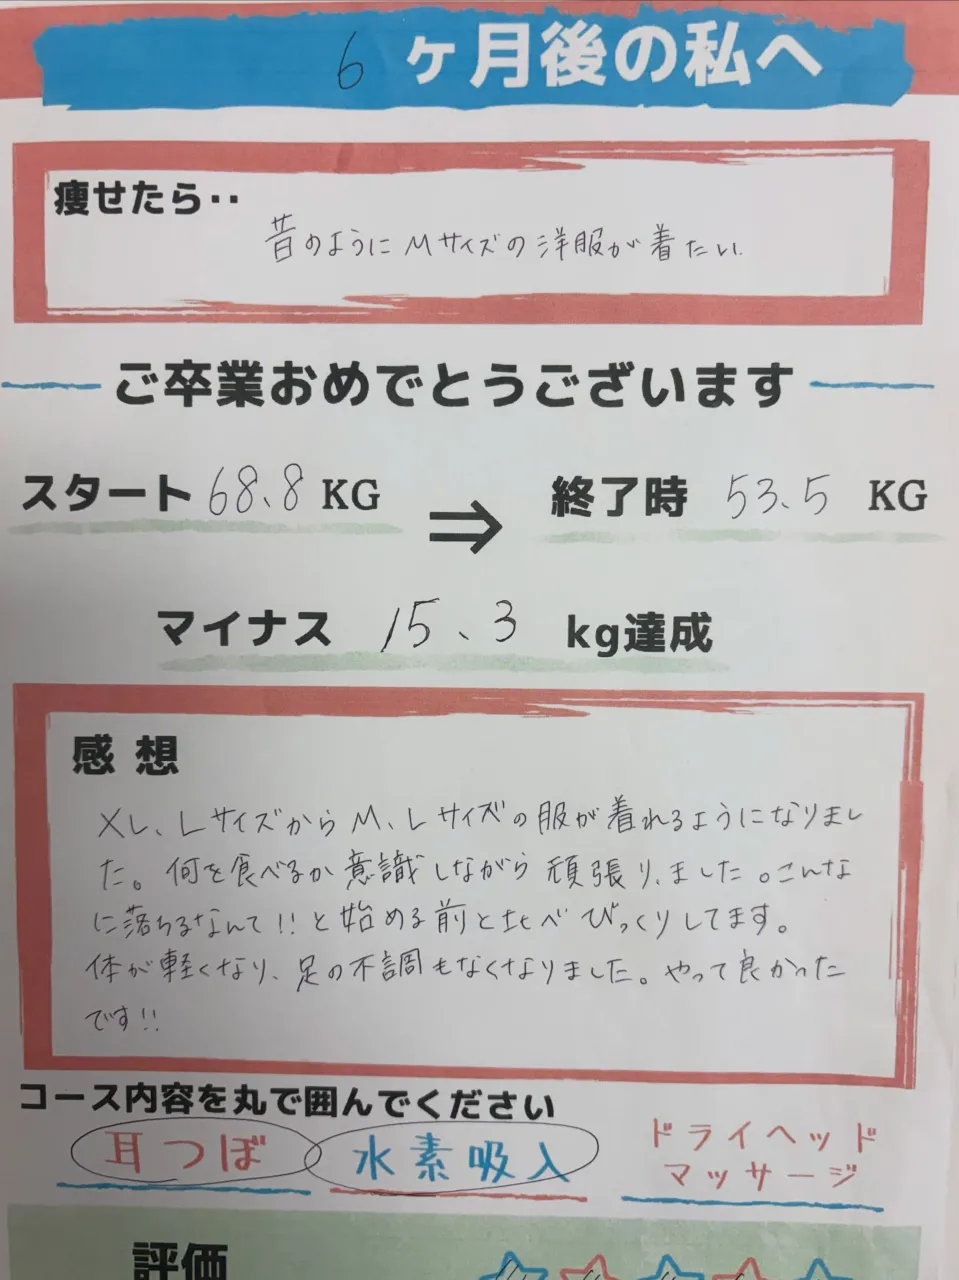 6 ヶ月後の私へ
痩せたら‥
昔のようにMサイズの洋服が着たい.
ご卒業おめでとうございます
スタート 68.8 KG ⇒ 終了時 53.5 KG
マイナス 15.3 kg達成
感想
XL、Lサイズから M、Lサイズの服が着れるようになりまし
た。何を食べるか意識しながら頑張りました。こんな
に落ちるなんて!!と始める前と比べびっくりしてます。
体が軽くなり、足の不調もなくなりました。やって良かった
です!!
コース内容を丸で囲んでください
耳つぼ 水素吸入 ドライヘッド
マッサージ
評価